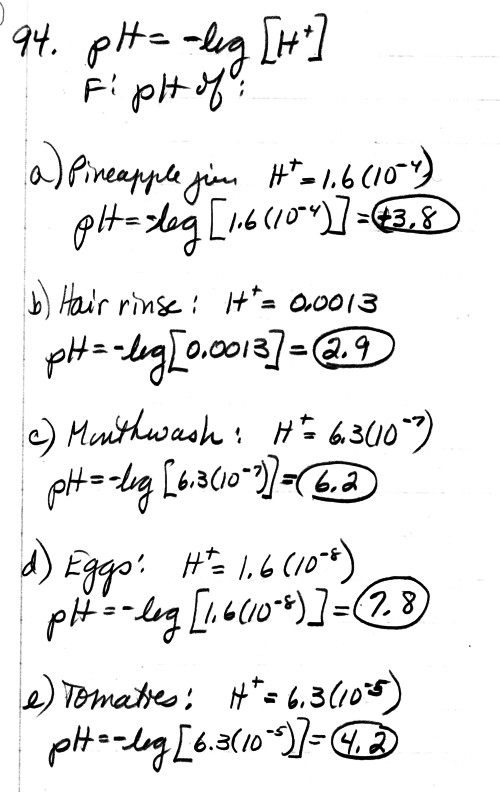 94. pH = -log [H⁺]
F: pH of:
a) Pineapple H⁺ = 1.6(10⁻⁴)
pH = -log [1.6(10⁻⁴)] = +3.8
b) Hair rinse: H⁺ = 0.0013
pH = -log [0.0013] = 2.9
c) Mouthwash: H⁺ = 6.3(10⁻⁷)
pH = -log [6.3(10⁻⁷)] = 6.2
d) Eggs: H⁺ = 1.6(10⁻⁸)
pH = -log [1.6(10⁻⁸)] = 7.8
e) Tomatoes: H⁺ = 6.3(10⁻⁵)
pH = -log [6.3(10⁻⁵)] = 4.2